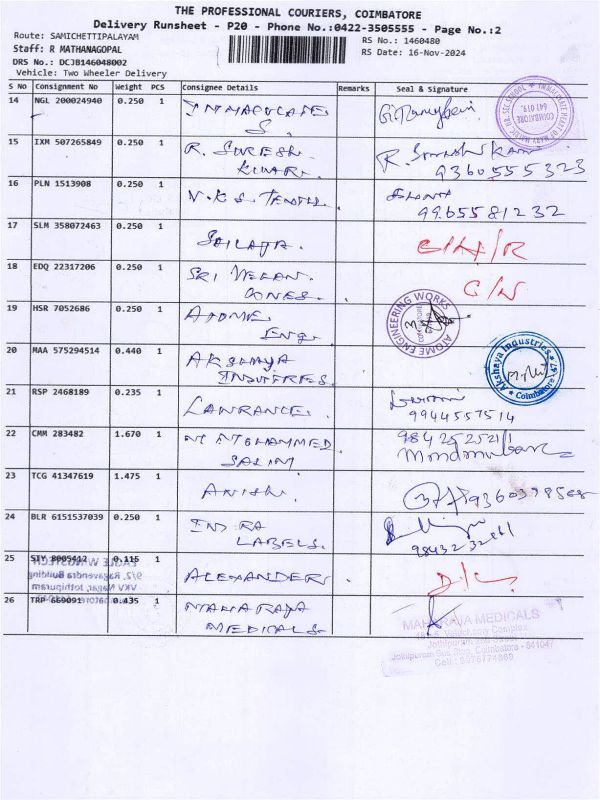 THE PROFESSIONAL COURIERS, COIMBATORE
Delivery Runsheet - P20 - Phone No.:0422-3505555 - Page No.:2
Route: SAMICHETTIPALAYAM
RS No.: 1460480
Staff: R MATHANAGOPAL
RS Date: 16-Nov-2024
DRS No.: DCJB146048002
Vehicle: Two Wheeler Delivery
S No Consignment No Weight PCS Consignee Details Remarks Seal & Signature
14 NGL 200024940 0.250 1 IMMACULATE
S.
COIMBATORE
641 019.
15 IXM 507265849 0.250 1 R. SURESH
KUMAR.
9360555323
16 PLN 1513908 0.250 1 V.K.S. TEXTILE.
9965581232
17 SLM 358072463 0.250 1 SAILAJA.
18 EDQ 22317206 0.250 1 SRI VELAN.
CONES.
19 HSR 7052686 0.250 1 ATOME
Eng.
ATOME ENGINEERING WORKS
20 MAA 575294514 0.440 1 AKSHAYA
INDUSTRIES.
Akshaya Industries
Coimbatore
21 RSP 2468189 0.235 1 LAWRANCE.
9944557514
22 CMM 283482 1.670 1 MOHAMMED
SALIM
23 TCG 41347619 1.475 1 ANISH.
24 BLR 6151537039 0.250 1 INDRA
LABELS.
25 SIY 8005412 0.115 1 ALEXANDER
9/2, Ragavendra Building
VKV Nagar, Jothipuram
26 TRP 669091 0.435 1 MAHARAJA
MEDICALS
MAHARAJA MEDICALS
Complex
Coimbatore - 641047